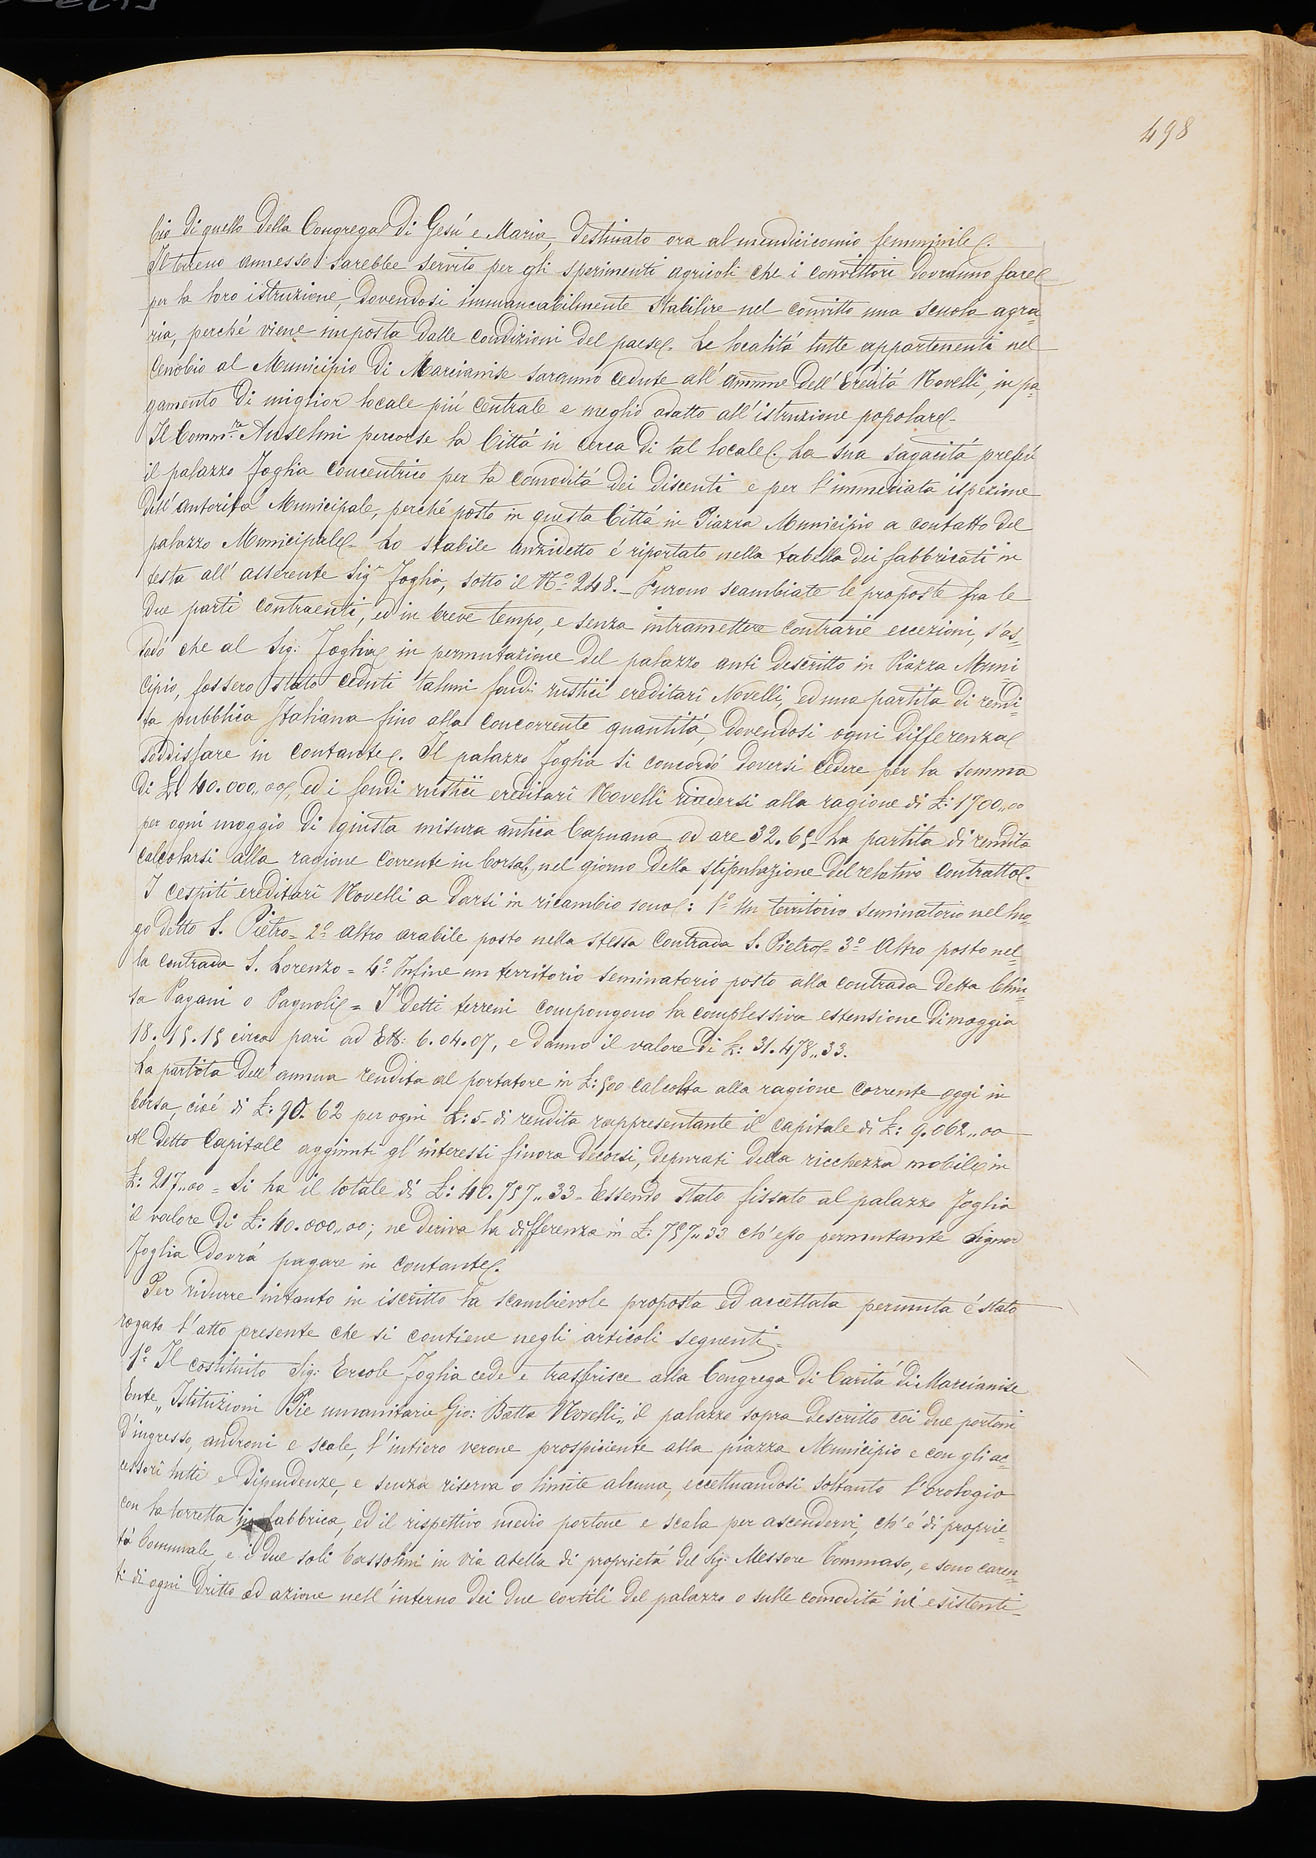 498
bio di quello della Congrega di Gesú e Maria, destinato ora al mendicicomio femminile.
Il terreno annesso sarebbe servito per gli sperimenti agricoli che i convittori dovranno fare
per la loro istruzione, dovendosi immancabilmente stabilire nel convitto una scuola agra-
ria, perché viene imposta dalle condizioni del paese. Le localitá tutte appartenenti nel
Cenobio al Municipio di Marcianise saranno cedute all' Ammne dell' Ereditá Novelli, in pa-
gamento di miglior locale piú centrale e meglio adatto all' istruzione popolare.
Il Commre Anselmi percorse la Cittá in cerca di tal locale. La sua sagacitá preferí
il palazzo Foglia concentrico per la comoditá dei discenti e per l' immediata ispezione
dell' autoritá Municipale, perché posto in questa Cittá in Piazza Municipio a contatto del
palazzo Municipale. Lo stabile anzidetto é riportato nella tabella dei fabbricati in
testa all' asserente Sigr Foglia, sotto il No 248. – Furono scambiate le proposte fra le
due parti contraenti, ed in breve tempo, e senza intramettere contrarie eccezioni, s'as-
sodó che al Sig: Foglia in permutazione del palazzo anti descritto in Piazza Muni-
cipio, fossero stati ceduti taluni fondi rustici ereditarî Novelli, ed una partita di rendi-
ta pubblica Italiana fino alla concorrente quantitá, dovendosi ogni differenza
soddisfare in contante. Il palazzo Foglia si concordó doversi cedere per la somma
di £ 40.000,,00, ed i fondi rustici ereditarî Novelli cedersi alla ragione di £: 1700,,00
per ogni moggio di giusta misura antica Capuana od are 32.65 la partita di rendita
calcolarsi alla ragione corrente in borsa, nel giorno della stipulazione del relativo contratto.
I cespiti ereditarî Novelli a darsi in ricambio sono: 1o Un territorio seminatorio nel luo-
go detto S. Pietro = 2o altro arabile posto nella stessa contrada S. Pietro = 3o Altro posto nel-
la contrada S. Lorenzo = 4o Infine un territorio seminatorio posto alla contrada detta Chiu-
sa Pagani o Pagnoli = I detti terreni compongono la complessiva estensione di moggia
18.15.15 circa pari ad Ett: 6.04.07, e danno il valore di £: 31.478,,33.
La partita dell' annua rendita al portatore in £: 500 calcolta alla ragione corrente oggi in
borsa, cioé di £: 90.62 per ogni £: 5 – di rendita rappresentante il capitale di £: 9.062,,00
Al detto Capitale aggiunti gl' interessi finora decorsi, depurati della ricchezza mobile in
£: 217,,00 = Si ha il totale di £: 40.757,,33 – Essendo stato fissato al palazzo Foglia
il valore di £: 40.000,,00; ne deriva la differenza in £: 757,,33 ch' esso permutante Signor
Foglia dovrá pagare in contante.
Per ridurre intanto in iscritto la scambievole proposta ed accettata permuta é stato
rogato l' atto presente che si contiene negli articoli seguenti.
1o Il costituito Sig: Ercole Foglia cede e trasferisce alla Congrega di Caritá di Marcianise
Ente „ Istituzioni Pie umanitarie Gio: Batta Novelli „ il palazzo sopra descritto coi due portoni
d'ingresso, androni e scale, l' intiero verone prospiciente alla piazza Municipio e con gli ac-
cessorî tutti e dipendenze, e senza riserva o limite alcuno, eccettuandosi soltanto l' orologio
con la torretta in fabbrica, ed il rispettivo medio portone e scala per ascendervi, ch' é di proprie-
tá Comunale, e i due soli bassolini in via Atella di proprietá del Sig: Messore Tommaso, e sono caren-
ti di ogni dritto ed azione nell' interno dei due cortili del palazzo o sulle comoditá ivi esistenti –